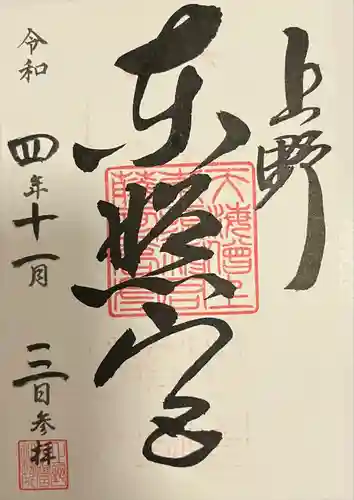 上野
東照宮
令和四年十一月三日参拝